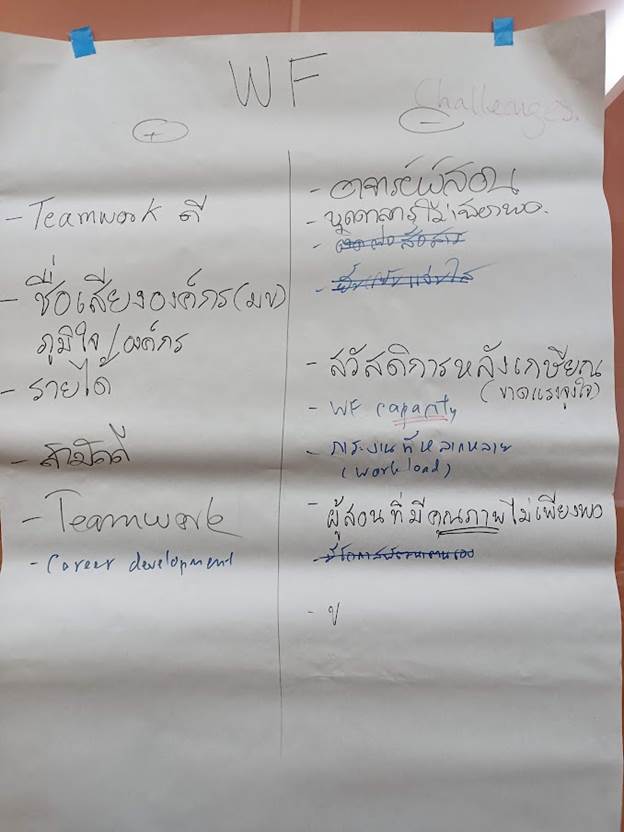 WF
+
- Challenges.
- Teamwork ดี
- ชื่อเสียงองค์กร(มข)
ภูมิใจ/องค์กร
- รายได้
- Teamwork
- Career development
- อาจารย์ผู้สอน
- บุคลากรไม่เพียงพอ
- สวัสดิการหลังเกษียณ
(ขาดแรงจูงใจ)
- WF capacity
- ภาระงานที่หลากหลาย
(work load)
- ผู้สอนที่มีคุณภาพไม่เพียงพอ
- ข